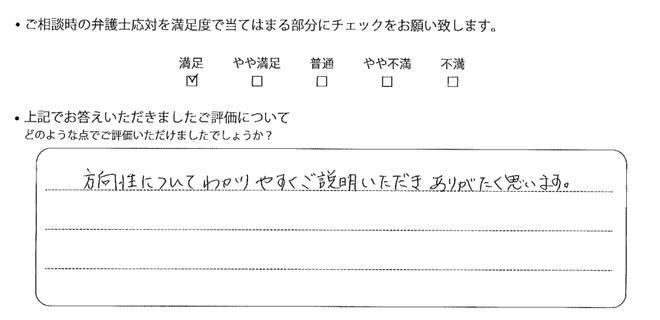 ・ご相談時の弁護士応対を満足度で当てはまる部分にチェックをお願い致します。
満足 やや満足 普通 やや不満 不満
☑ □ □ □ □
・上記でお答えいただきましたご評価について
どのような点でご評価いただけましたでしょうか？
方向性についてわかりやすくご説明いただきありがたく思います。